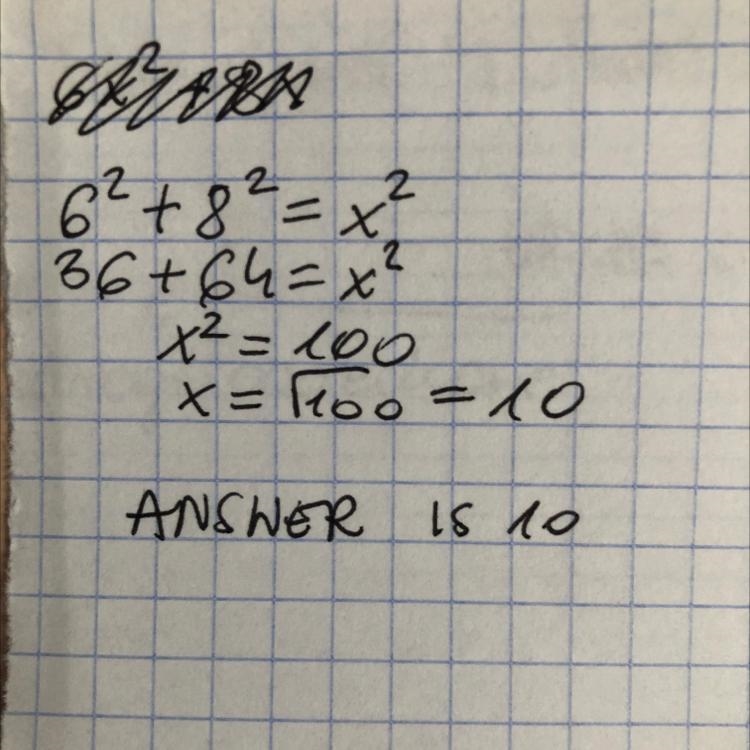 6² + 8² = x²
36 + 64 = x²
x² = 100
x = √100 = 10
ANSWER IS 10